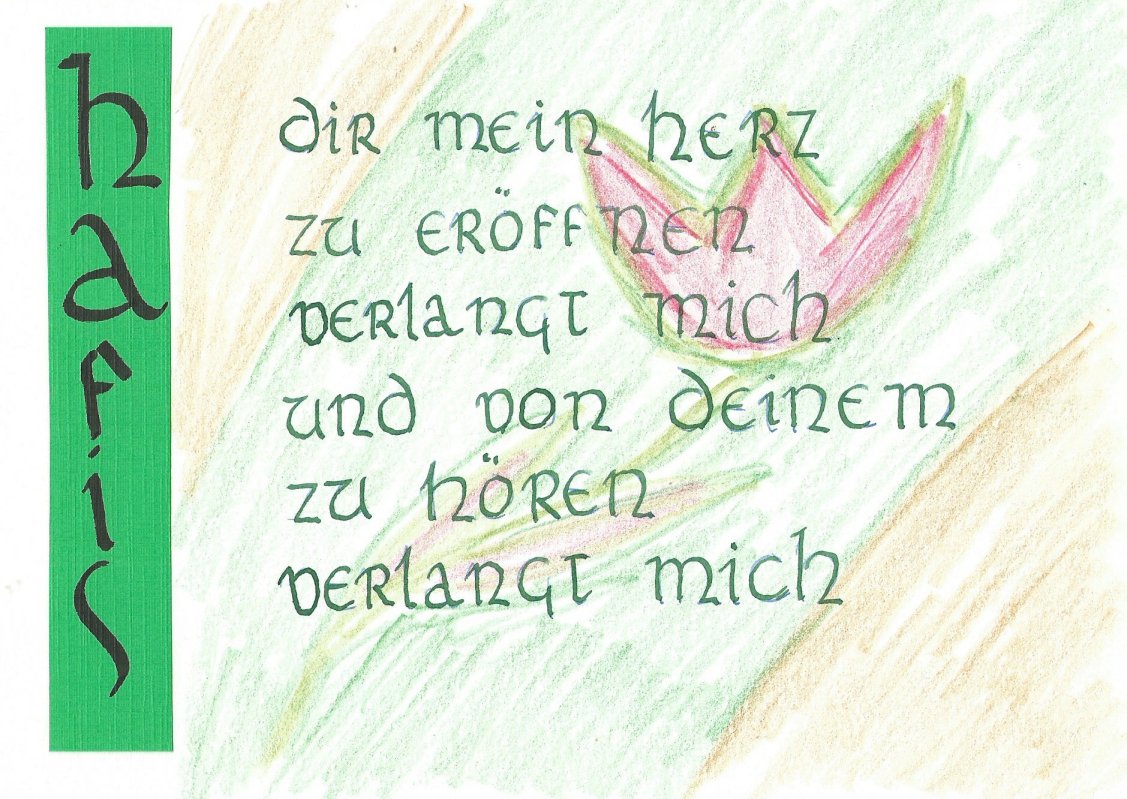 hafis
dir mein herz
zu eröffnen
verlangt mich
und von deinem
zu hören
verlangt mich